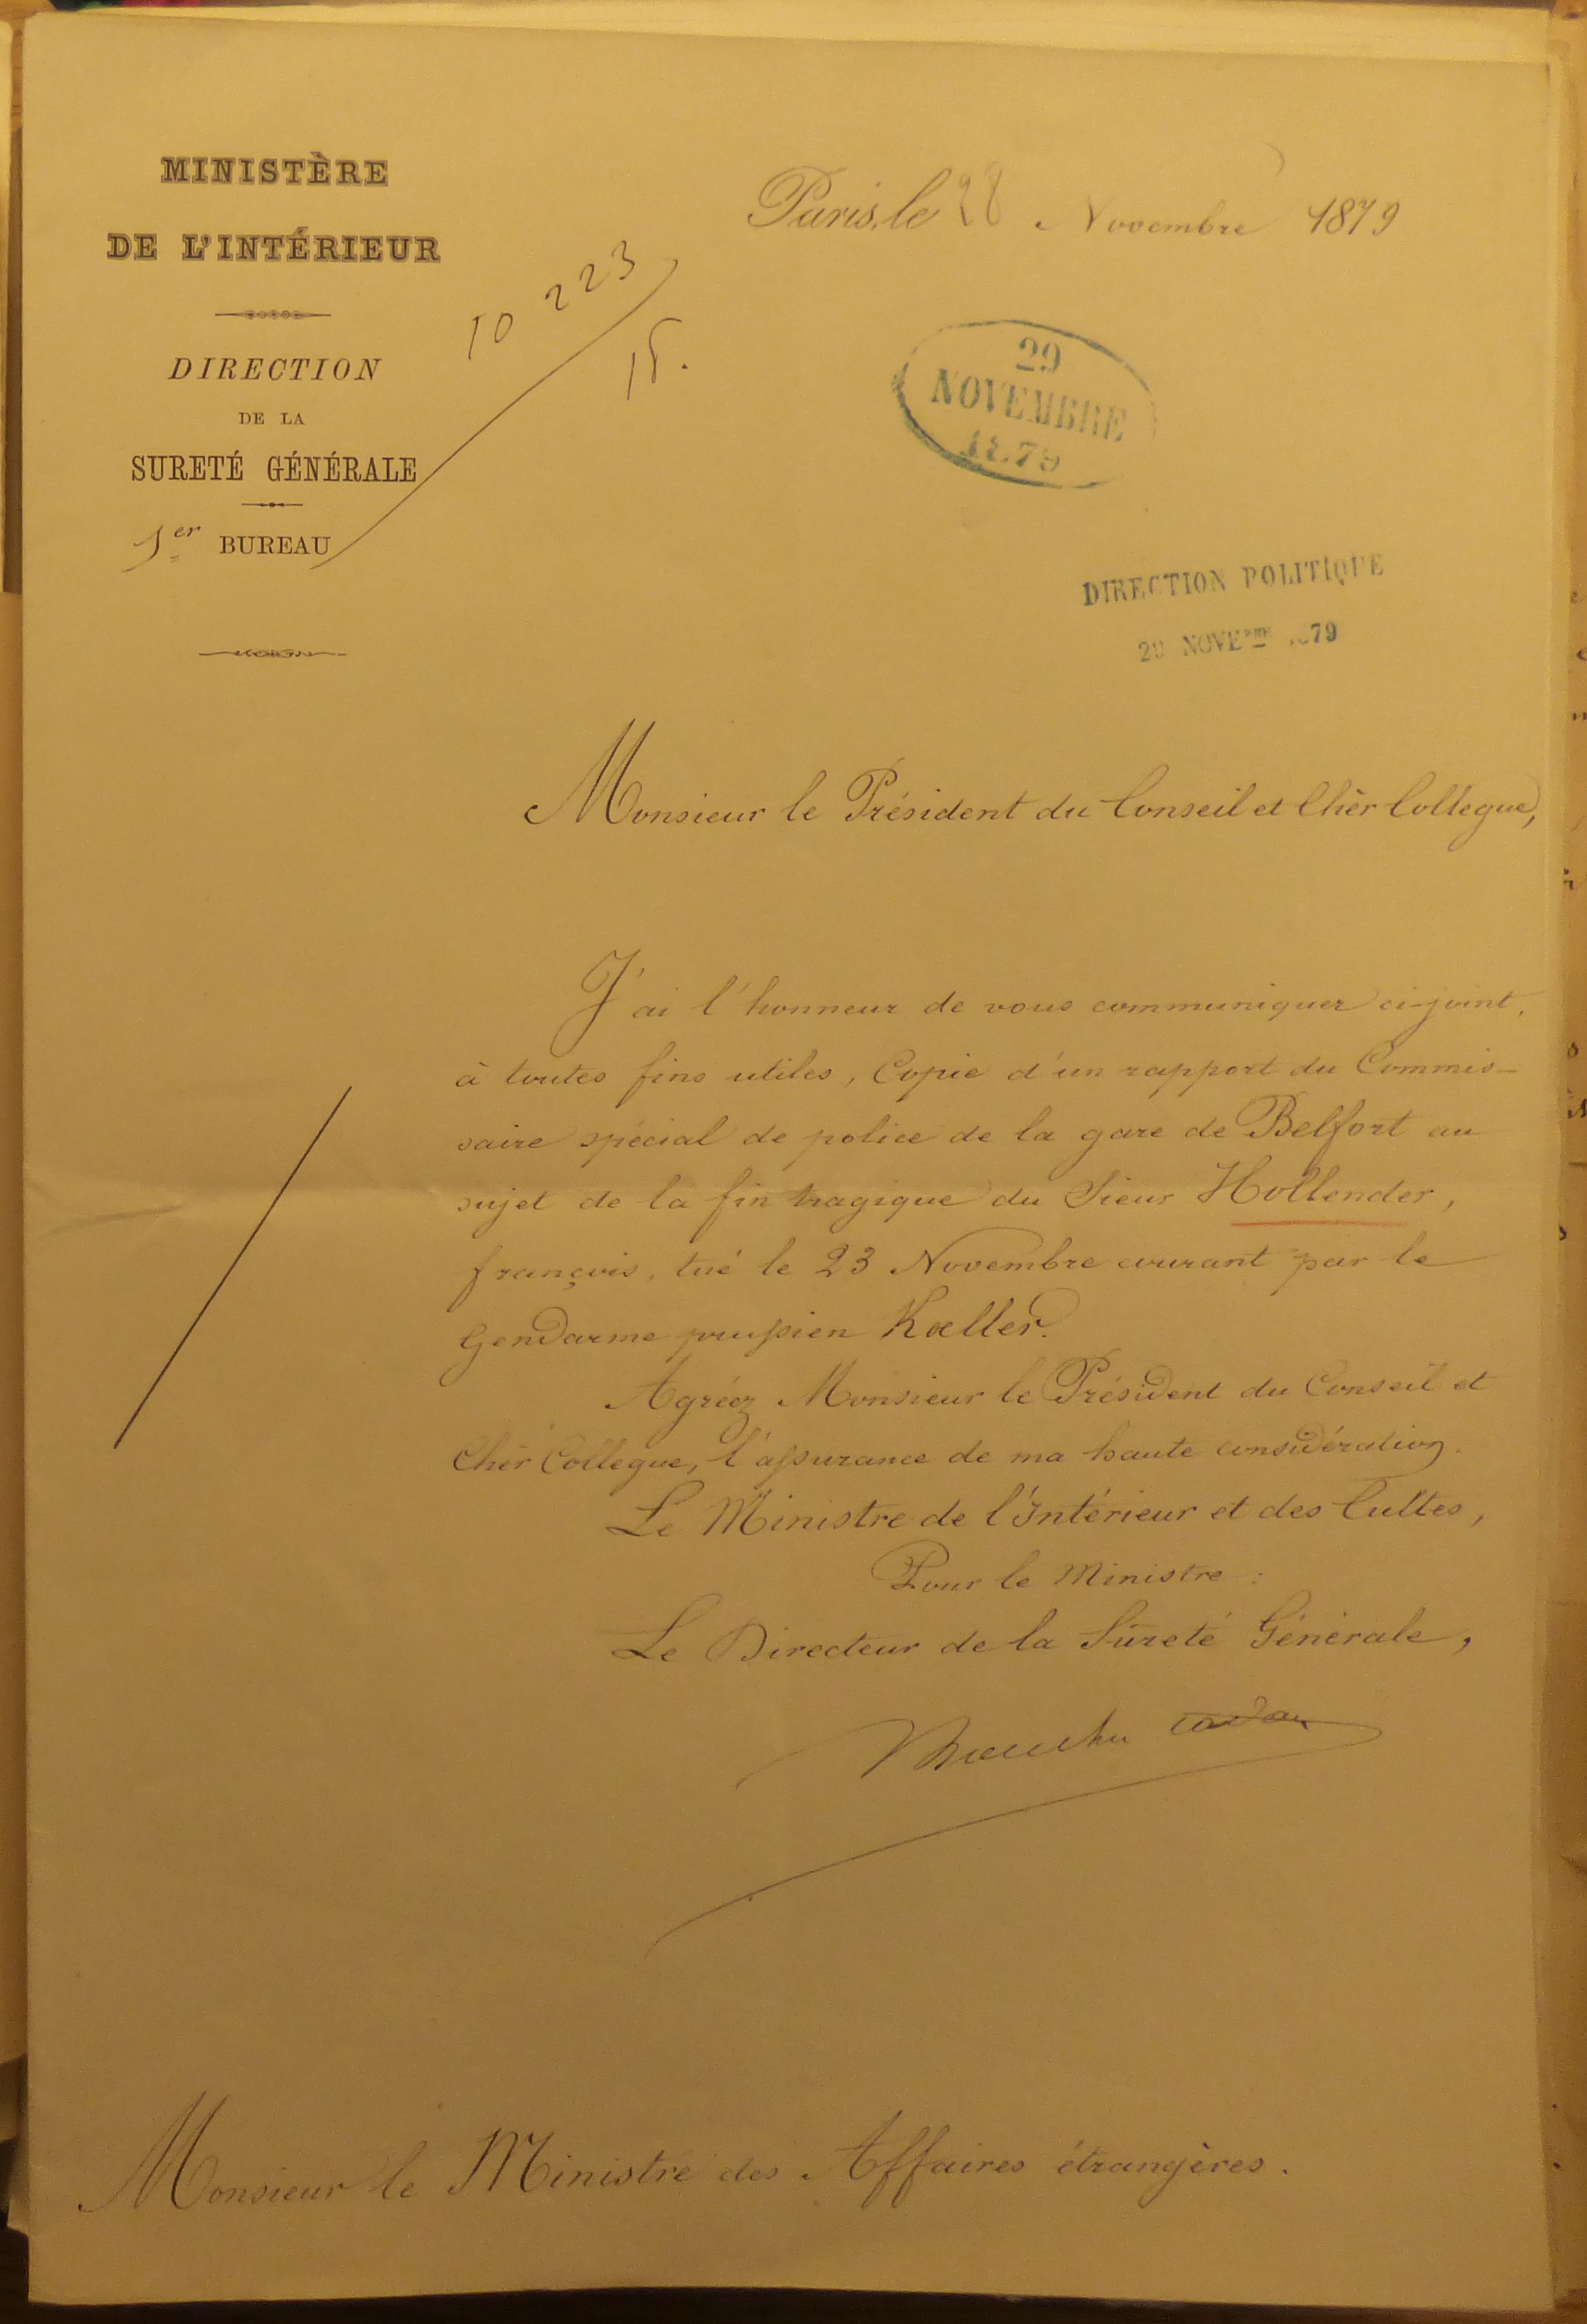 MINISTÈRE
DE L'INTÉRIEUR
DIRECTION
DE LA
SURETÉ GÉNÉRALE
1er BUREAU
10 223
15.
Paris, le 28 Novembre 1879
29
NOVEMBRE
1879
DIRECTION POLITIQUE
29 NOVEMBRE 1879
Monsieur le Président du Conseil et Cher Collegue,
J'ai l'honneur de vous communiquer ci-joint,
à toutes fins utiles, Copie d'un rapport du Commis-
saire spécial de police de la gare de Belfort au
sujet de la fin tragique du Sieur Hollender,
français, tué le 23 Novembre courant par le
Gendarme prussien Kœller.
Agréez Monsieur le Président du Conseil et
Cher Collegue, l'assurance de ma haute considération.
Le Ministre de l'Intérieur et des Cultes,
Pour le Ministre :
Le Directeur de la Sûreté Générale,
Monsieur le Ministre des Affaires étrangères.